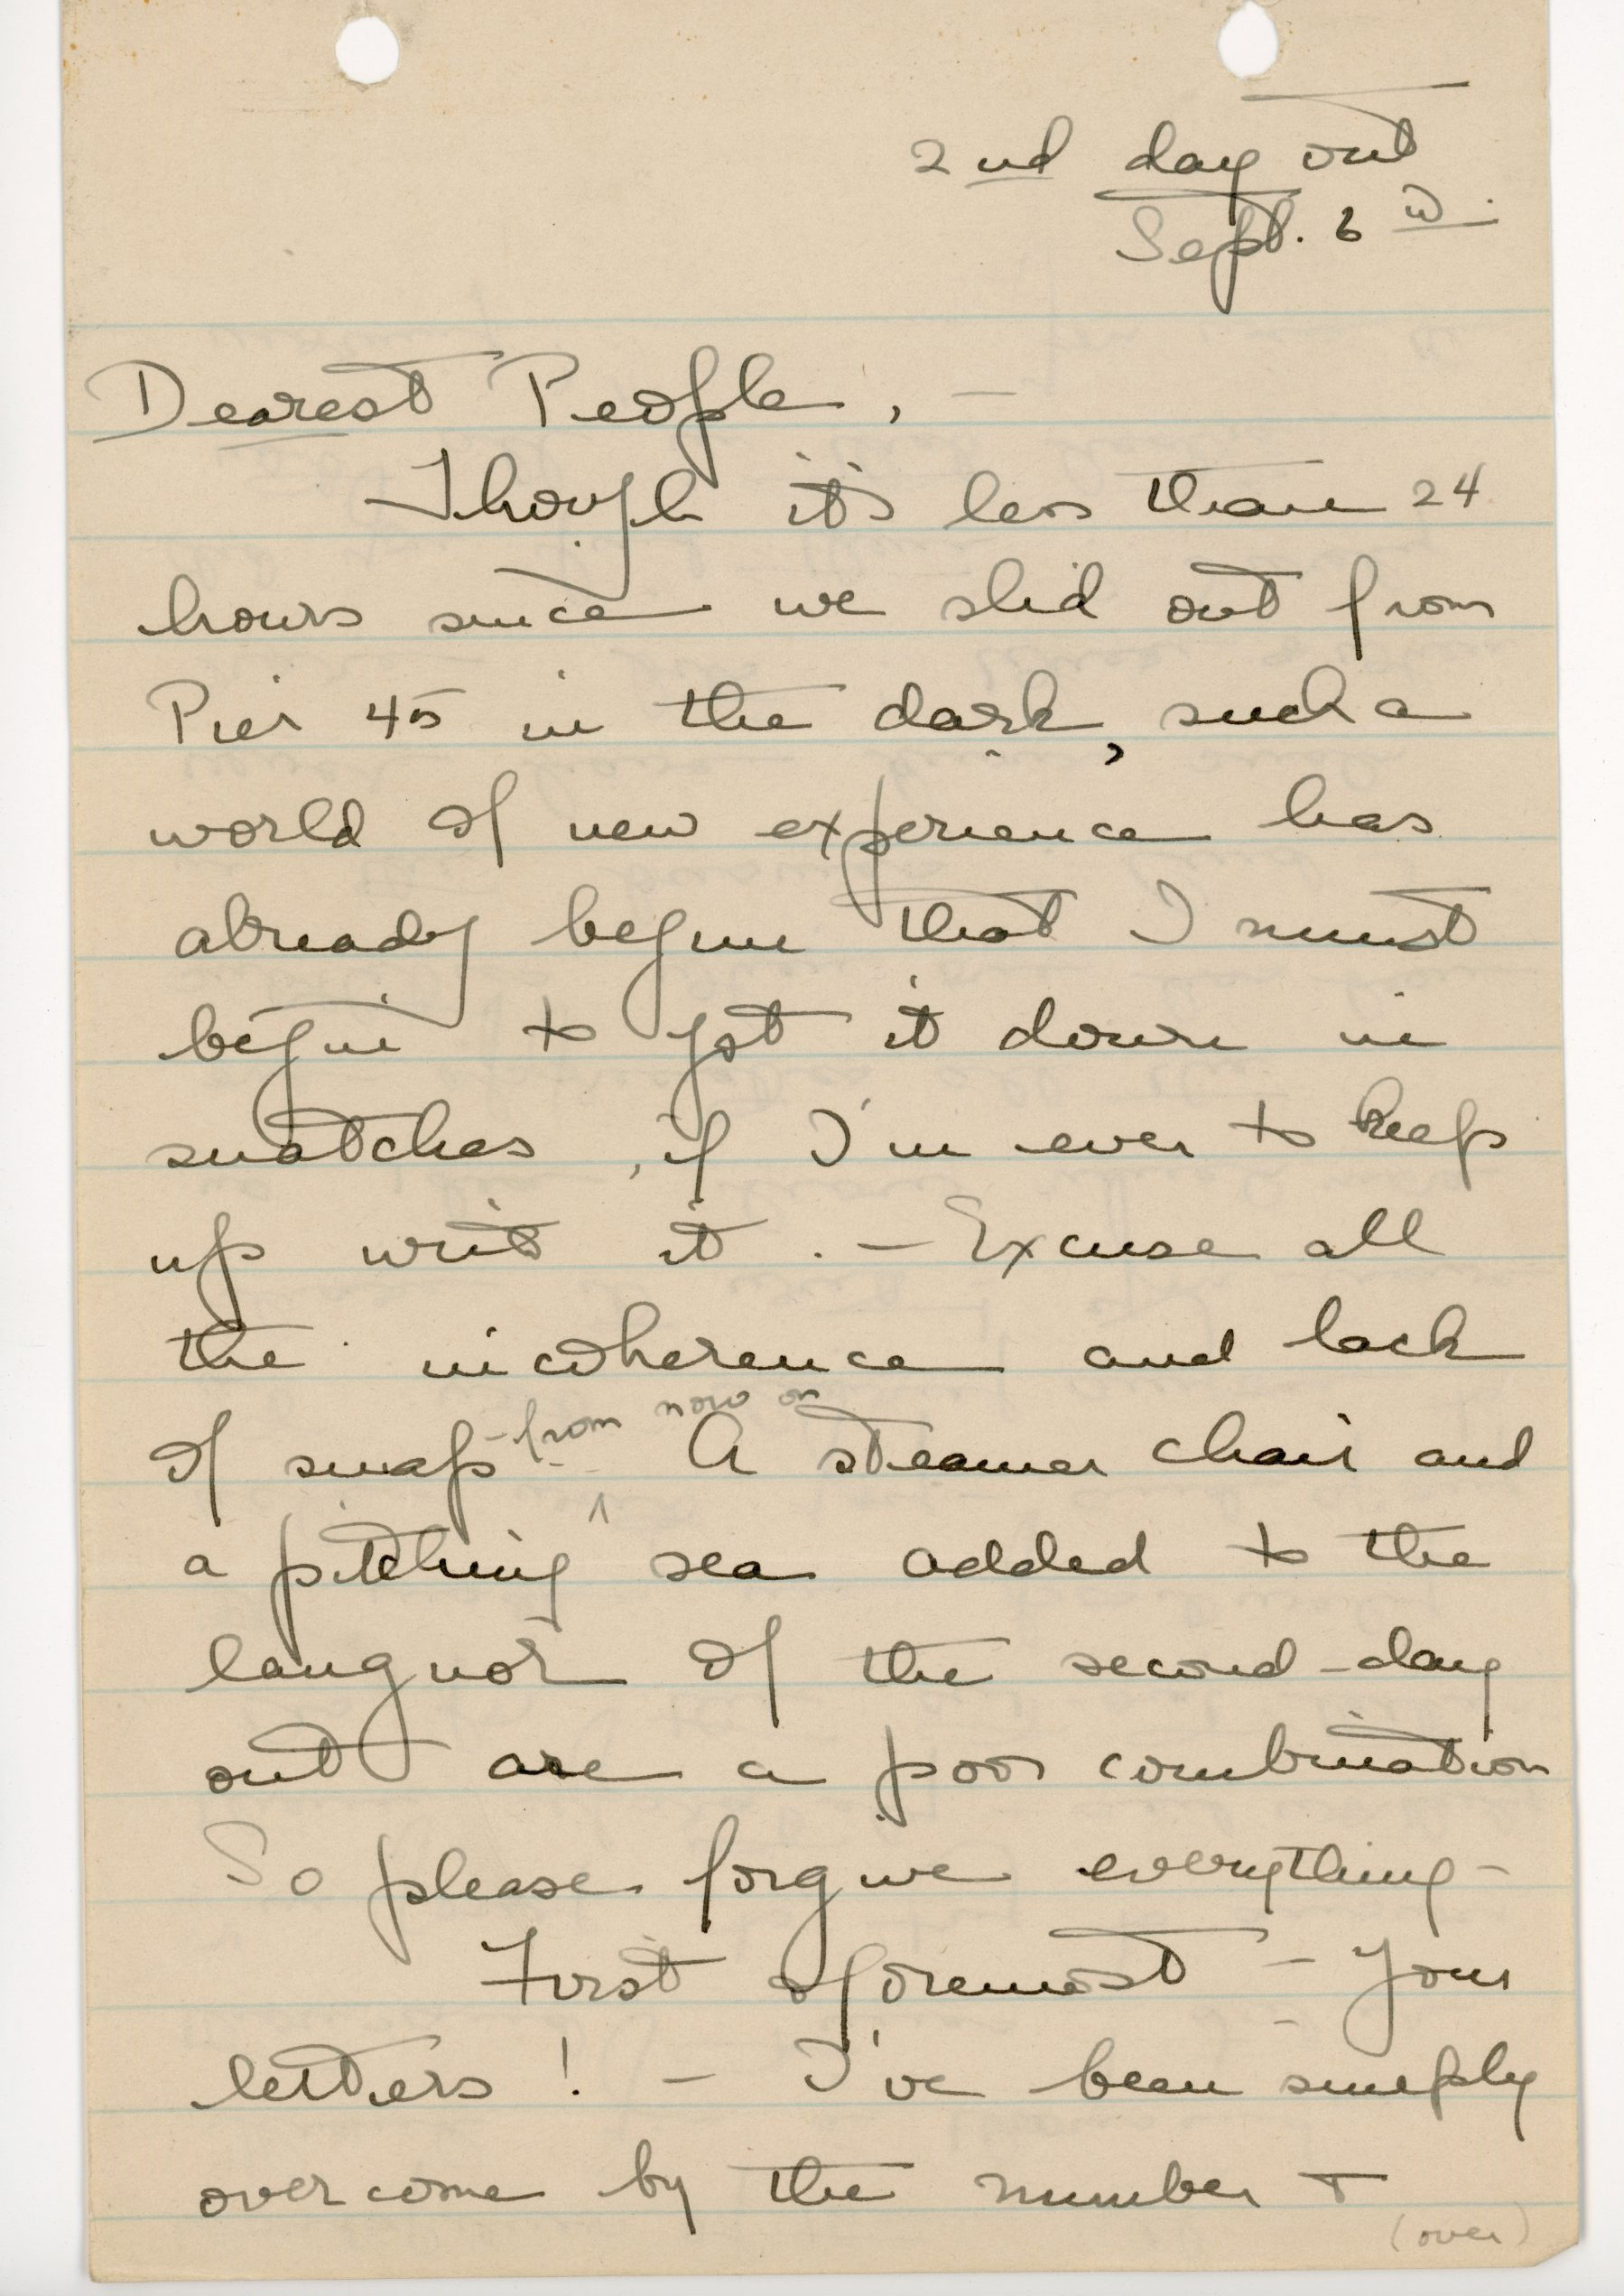 2nd day out
Sept. 6th.
Dearest People, —
Though it's less than 24
hours since we slid out from
Pier 45 in the dark, such a
world of new experience has
already begun that I must
begin to jot it down in
snatches, if I'm ever to keep
up with it. — Excuse all
the incoherence and lack
of snap - from now on. A steamer chair and
a pitching sea added to the
languor of the second-day
out are a poor combination
So please forgive everything -
First & foremost - your
letters! - I've been simply
overcome by the number +
(over)